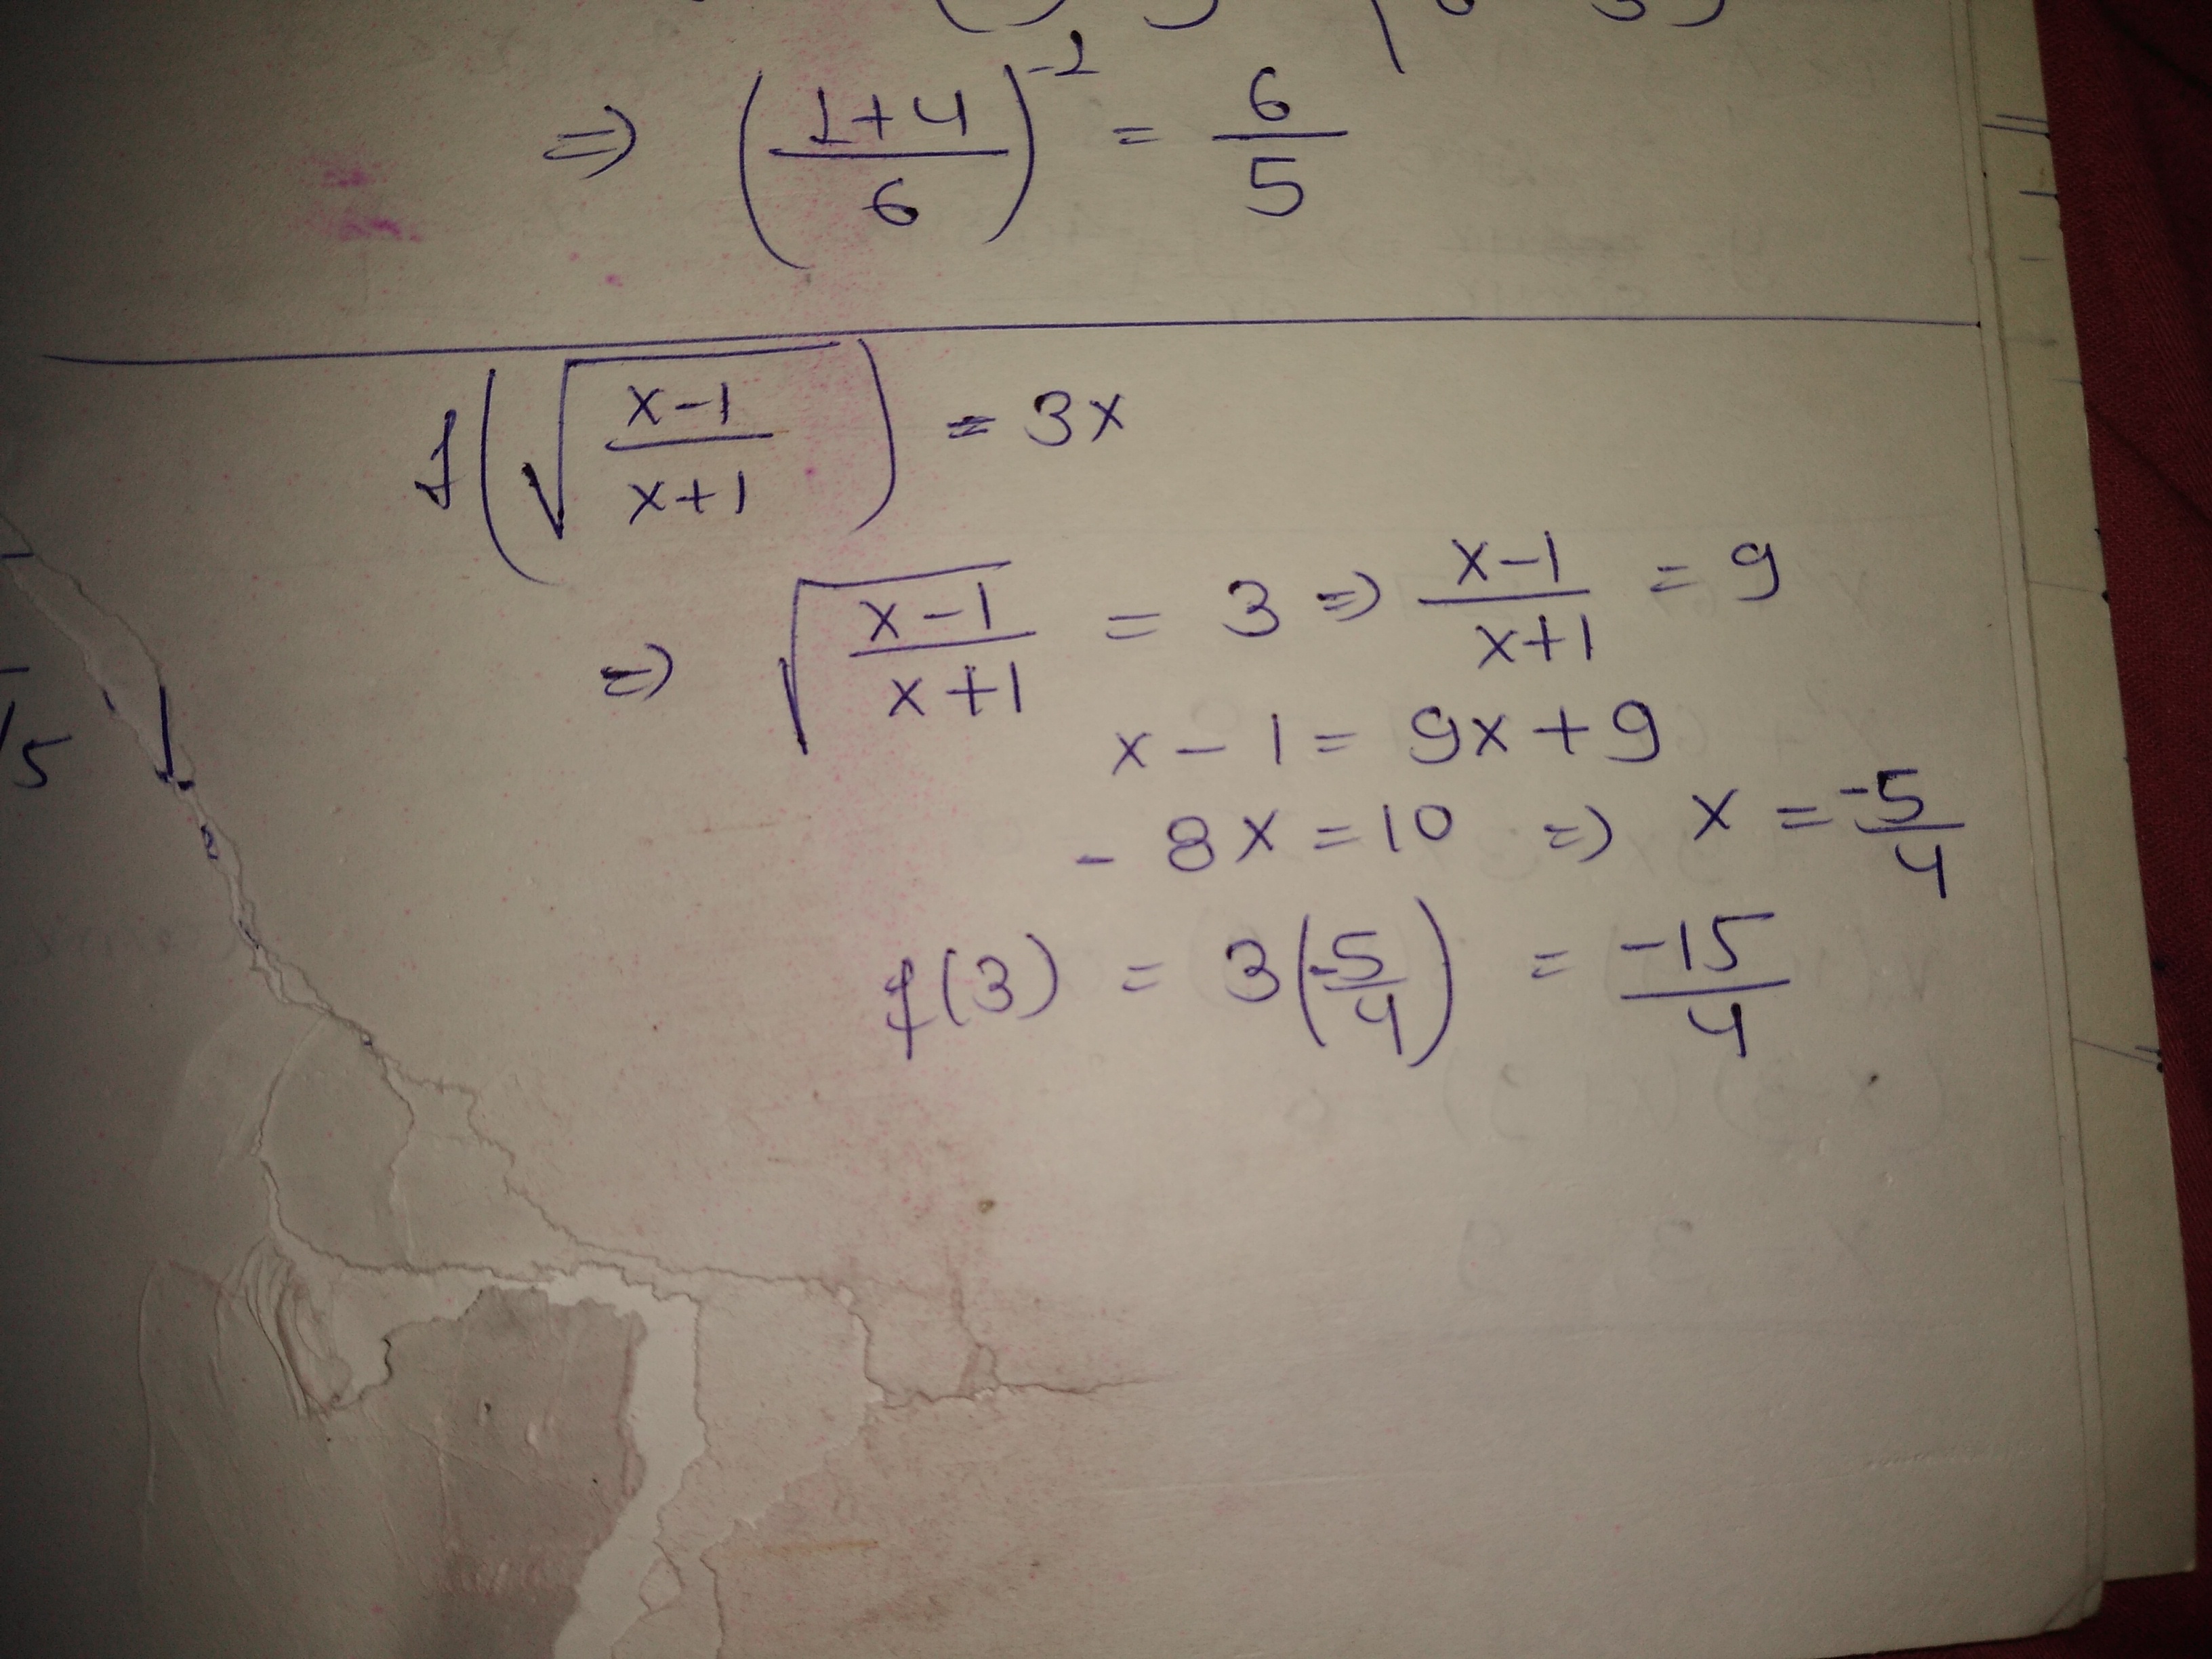 ⇒ (1+4/6)^-1 = 6/5
f(√(x-1/x+1)) = 3x
⇒ √(x-1/x+1) = 3 ⇒ x-1/x+1 = 9
x - 1 = 9x + 9
- 8x = 10 ⇒ x = -5/4
f(3) = 3(-5/4) = -15/4
/5